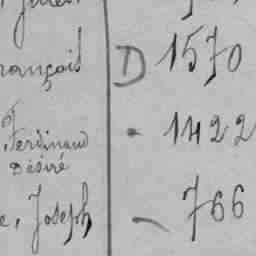 rançois D 1570
, Ferdinand - 1422
Désiré
e, Joseph - 766